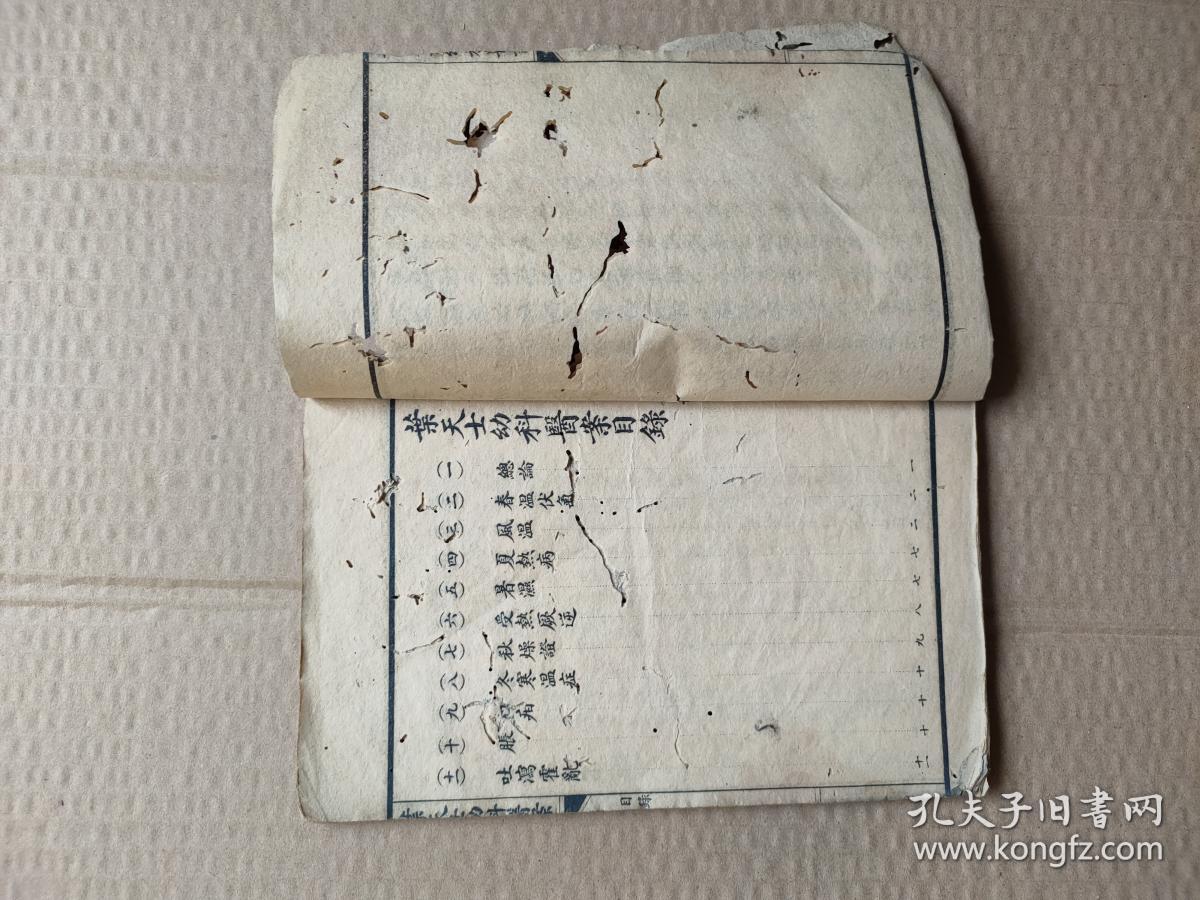 葉天士幼科醫案目錄
(一) 總論 一
(二) 春溫伏氣 二
(三) 風溫 二
(四) 夏熱病 七
(五) 暑濕 七
(六) 受熱厥逆 八
(七) 秋燥證 九
(八) 冬寒溫症 十
(九) 口疳 十
(十) 脹 十
(十一) 吐瀉霍亂 十一
目錄
孔夫子旧书网
www.kongfz.com